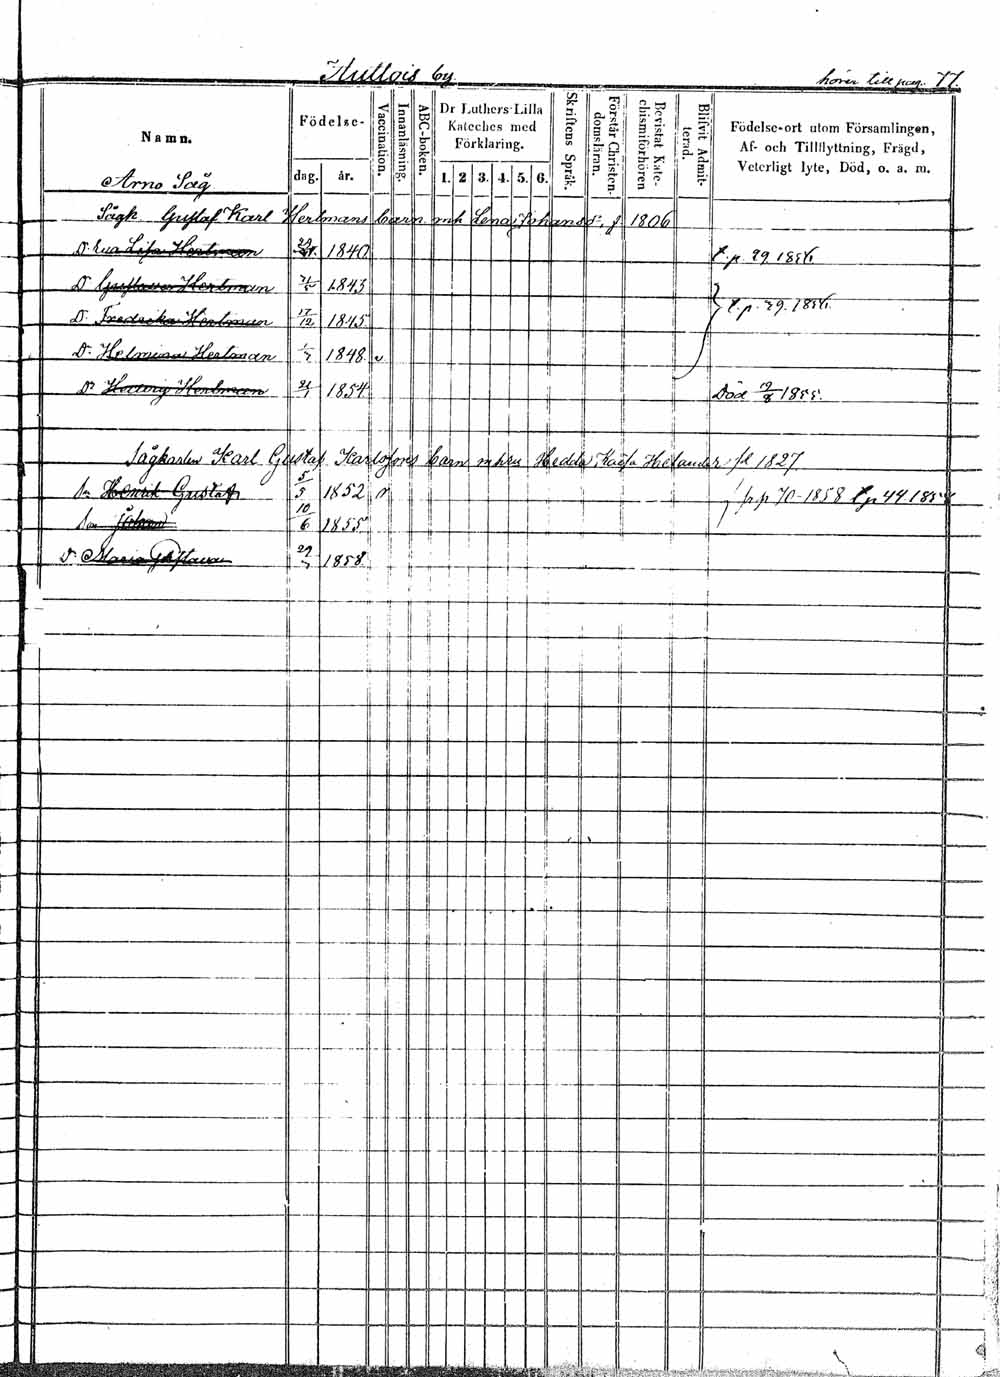 Hullois by hörer till pag. 77.
Namn. Födelse- dag. år. Vaccination. Innanläsning. ABC-boken. Dr Luthers Lilla Kateches med Förklaring. 1. 2 3. 4. 5. 6. Skriftens Språk. Förstår Christendomsläran. Bevistat Katechismiförhören Blifvit Admitterad. Födelse-ort utom Församlingen, Af- och Tillflyttning, Frägd, Veterligt lyte, Död, o. a. m.
Arno Såg
Sågk Gustaf Karl Hertmans barn mh Lena Johansd:r f. 1806
Dr Eva Lisa Hertman 1840 t.p. 29 1856
Dr Gustava Hertman 1843
Dr Fredrika Hertman 17/12 1845 t.p. 29. 1856.
Dr Helmina Hertman 1848 v
Dr Hedvig Hertman 1854 Död 9/8 1855.
Sågkarlen Karl Gustaf Karlssons barn m hu Hedda Kaisa Helander fd 1827
Sn Henrik Gustaf 5/5 1852 v p 70 1858 44
Sn Johan 10/6 1855
Dr Maria Gustava 1858